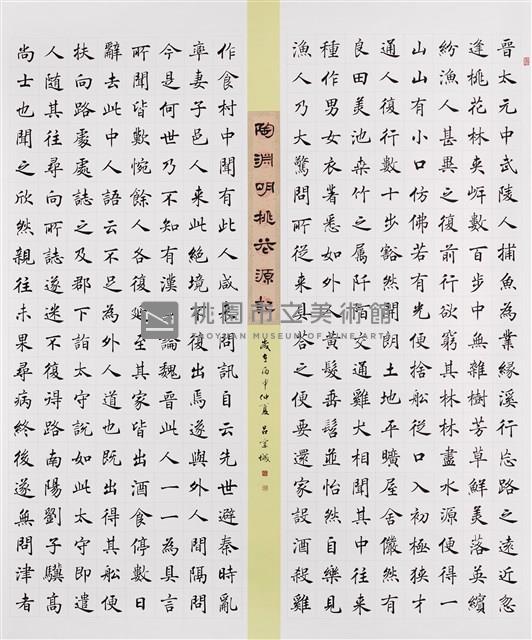 晋太元中武陵人捕魚為業緣溪行忘路之遠近忽
逢桃花林夾岸數百步中無雜樹芳草鮮美落英繽
紛漁人甚異之復前行欲窮其林林盡水源便得一
山山有小口仿佛若有光便捨船從口入初極狹才
通人復行數十步豁然開朗土地平曠屋舍儼然有
良田美池桑竹之屬阡陌交通雞犬相聞其中往來
種作男女衣著悉如外人黃髮垂髫並怡然自樂見
漁人乃大驚問所從來具答之便要還家設酒殺雞
陶淵明桃花源記
歲在丙申仲夏 呂
作食村中聞有此人咸來問訊自云先世避秦時亂
率妻子邑人來此絕境不復出焉遂與外人間隔問
今是何世乃不知有漢無論魏晉此人一一為具言
所聞皆歎惋餘人各復延至其家皆出酒食停數日
辭去此中人語云不足為外人道也既出得其船便
扶向路處處誌之及郡下詣太守說如此太守即遣
人隨其往尋向所誌遂迷不復得路南陽劉子驥高
尚士也聞之欣然親往未果尋病終後遂無問津者
桃園市立美術館
TAOYUAN MUSEUM OF FINE ARTS